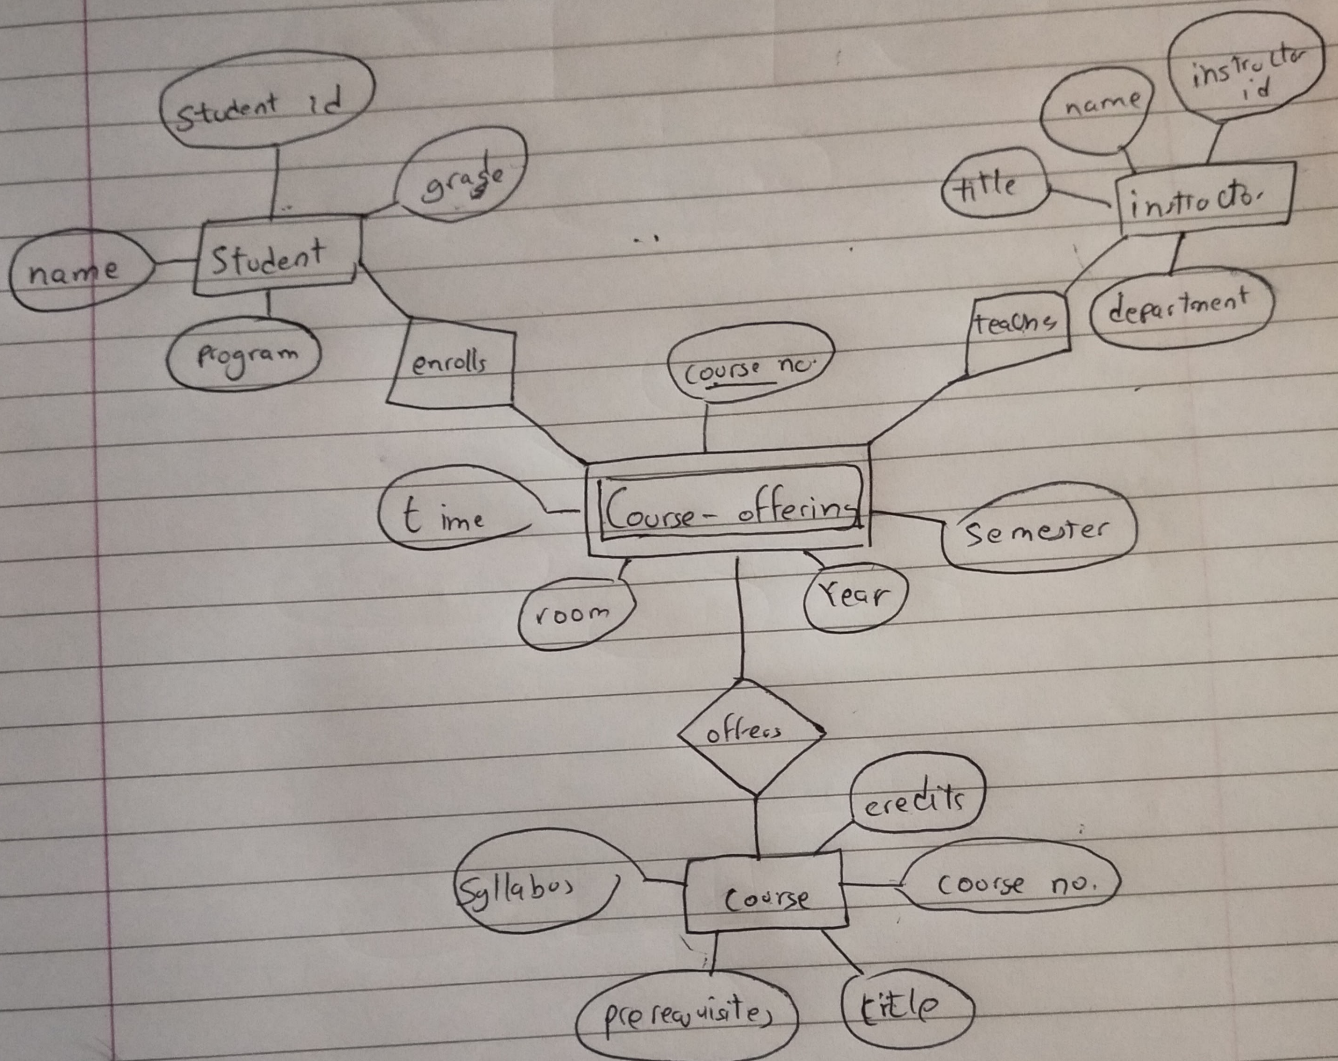 Student id
grade
name
Student
program
enrolls
course no.
name
instructor
id
title
instructor
department
teachs
time
Course-offering
semester
room
Year
offers
credits
syllabus
course
course no.
prerequisites
title